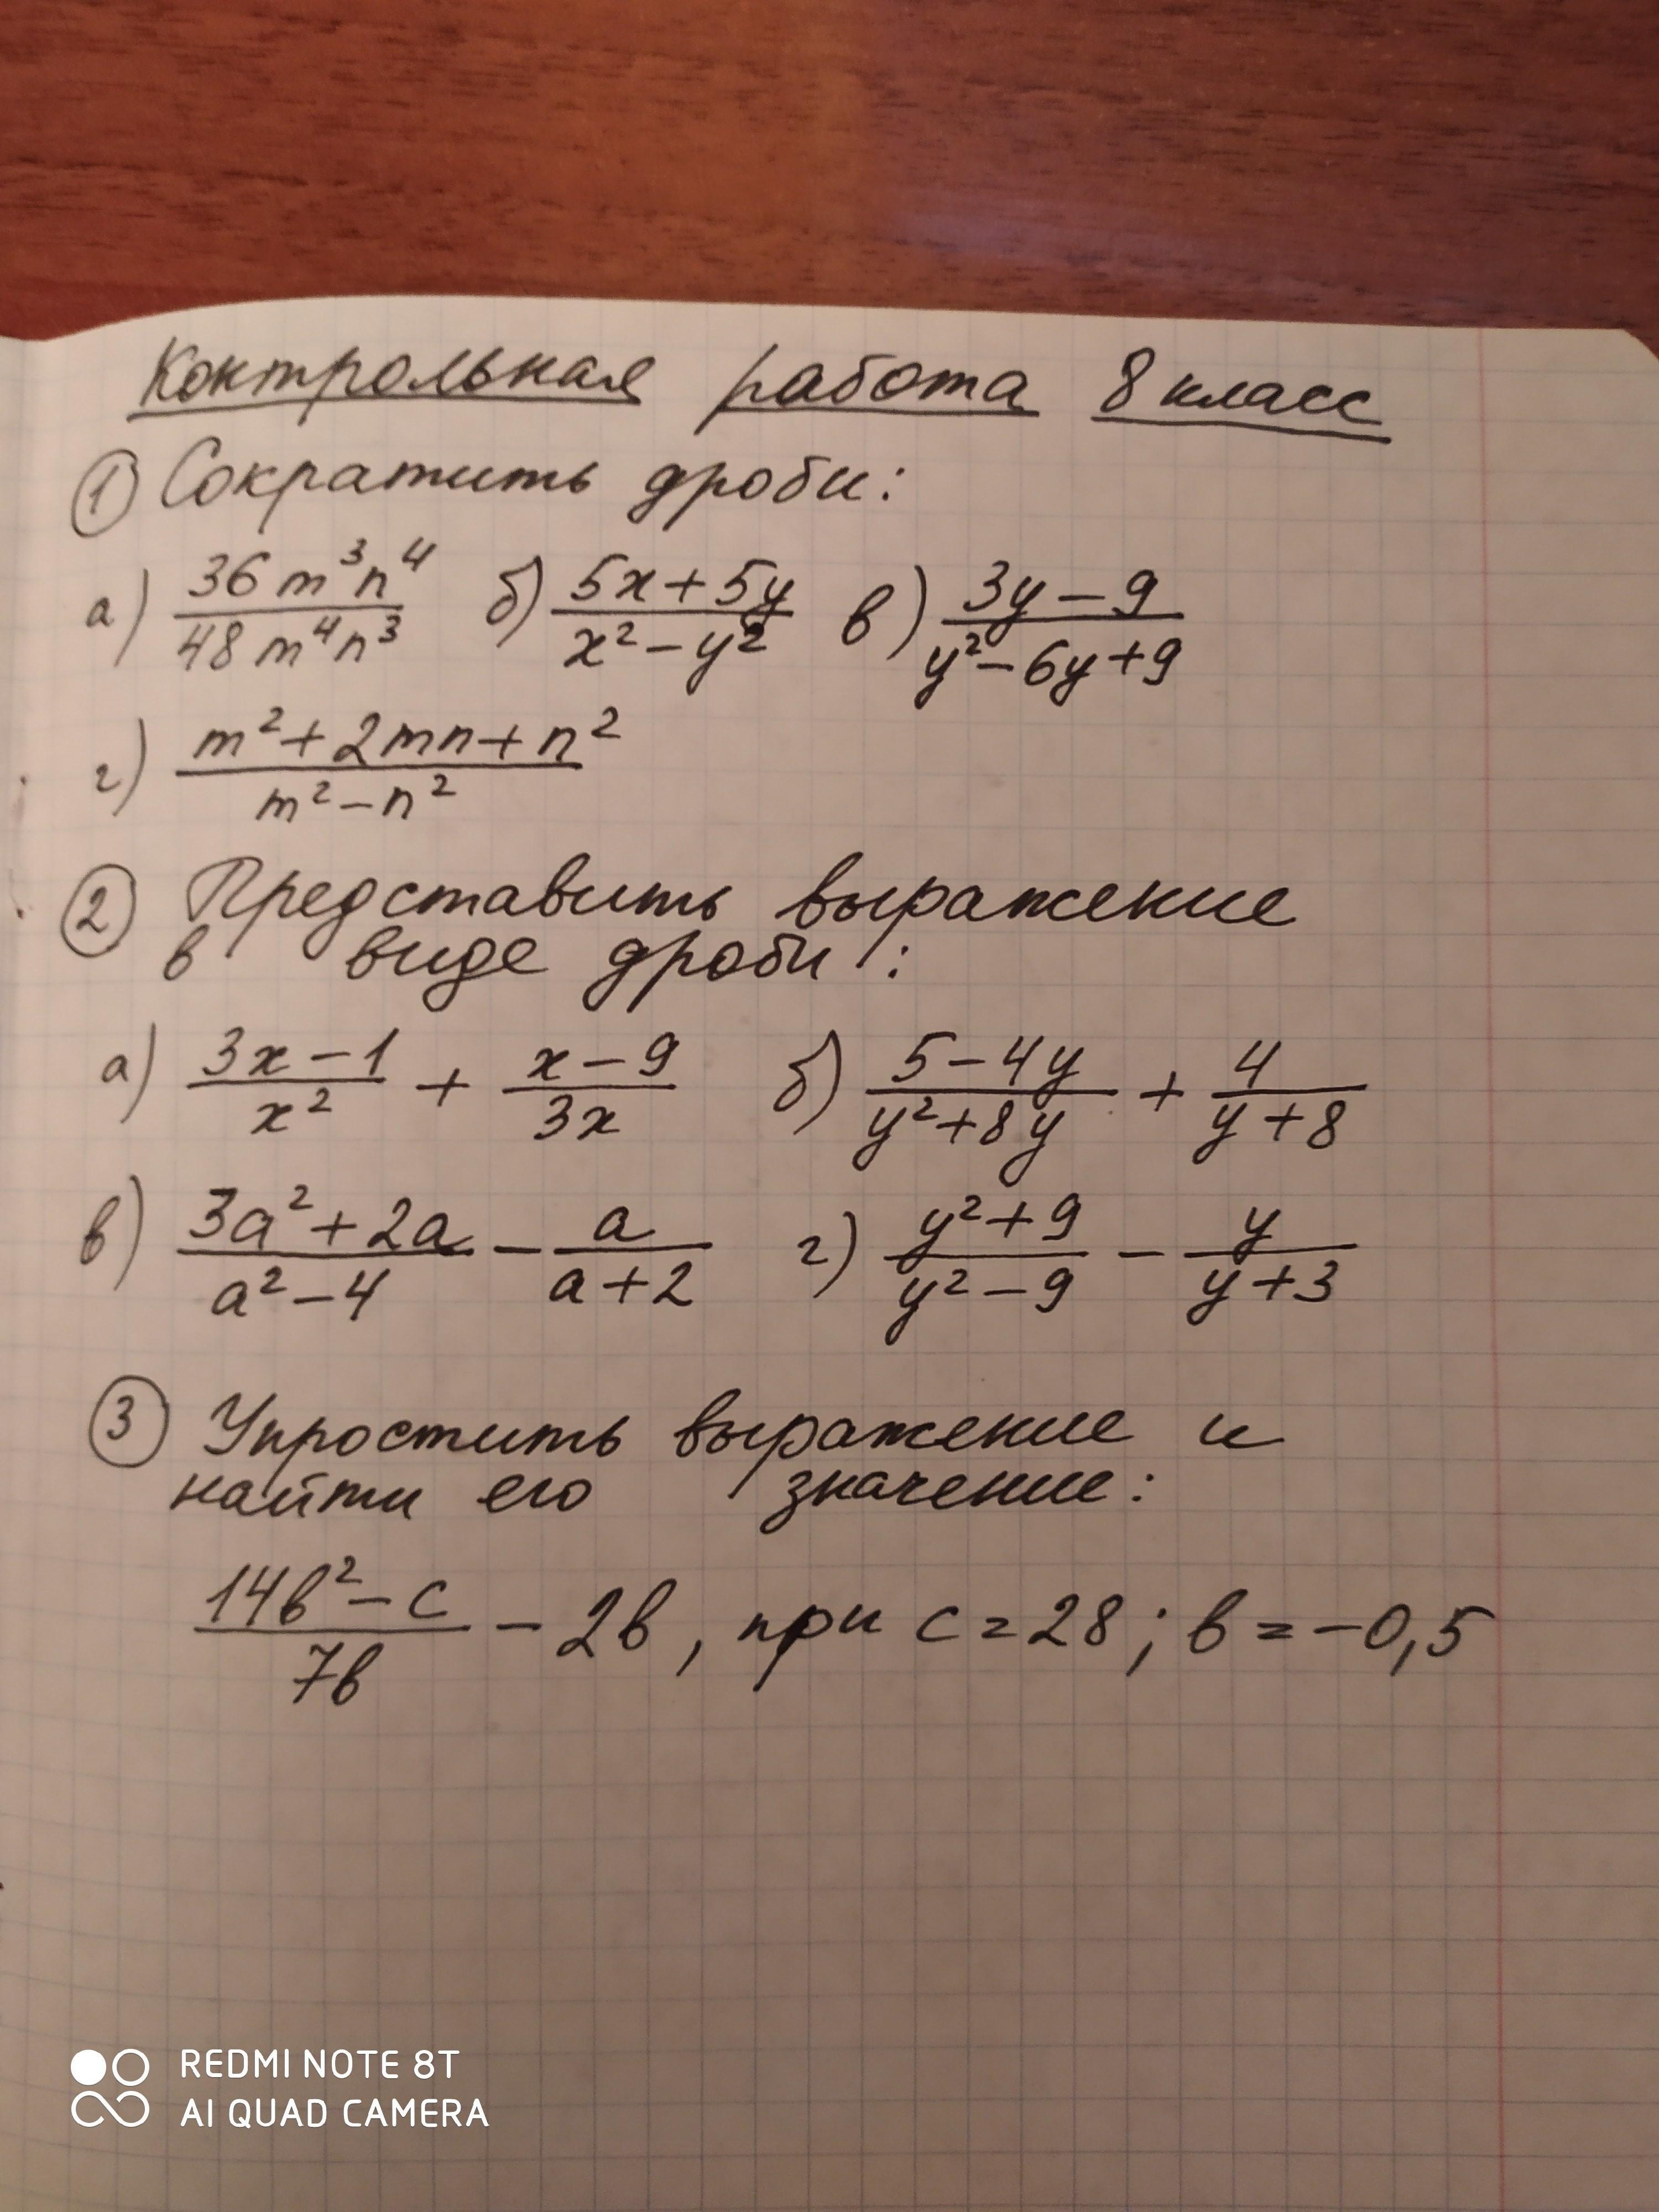 Контрольная работа 8 класс
① Сократить дроби:
а) 36m³n⁴/48m⁴n³ б) (5x+5y)/(x²−y²) в) (3y−9)/(y²−6y+9)
г) (m²+2mn+n²)/(m²−n²)
② Представить выражение
в виде дроби:
а) (3x−1)/x² + (x−9)/3x б) (5−4y)/(y²+8y) + 4/(y+8)
в) (3a²+2a)/(a²−4) − a/(a+2) г) (y²+9)/(y²−9) − y/(y+3)
③ Упростить выражение и
найти его значение:
(14в²−с)/7в − 2в, при с=28; в=−0,5
REDMI NOTE 8T
AI QUAD CAMERA